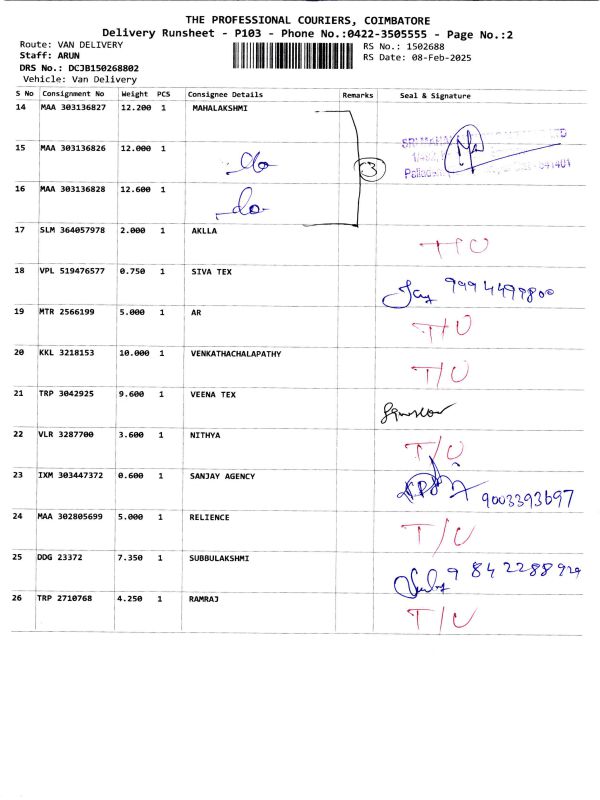 THE PROFESSIONAL COURIERS, COIMBATORE
Delivery Runsheet - P103 - Phone No.:0422-3505555 - Page No.:2
Route: VAN DELIVERY RS No.: 1502688
Staff: ARUN RS Date: 08-Feb-2025
DRS No.: DCJB150268802
Vehicle: Van Delivery
S No Consignment No Weight PCS Consignee Details Remarks Seal & Signature
14 MAA 303136827 12.200 1 MAHALAKSHMI
15 MAA 303136826 12.000 1 do 3
16 MAA 303136828 12.600 1 do
17 SLM 364057978 2.000 1 AKLLA T/U
18 VPL 519476577 0.750 1 SIVA TEX Jay 9994499800
19 MTR 2566199 5.000 1 AR T/U
20 KKL 3218153 10.000 1 VENKATHACHALAPATHY T/U
21 TRP 3042925 9.600 1 VEENA TEX
22 VLR 3287700 3.600 1 NITHYA T/U
23 IXM 303447372 0.600 1 SANJAY AGENCY 9003393697
24 MAA 302805699 5.000 1 RELIENCE T/U
25 DDG 23372 7.350 1 SUBBULAKSHMI 9842288929
26 TRP 2710768 4.250 1 RAMRAJ T/U